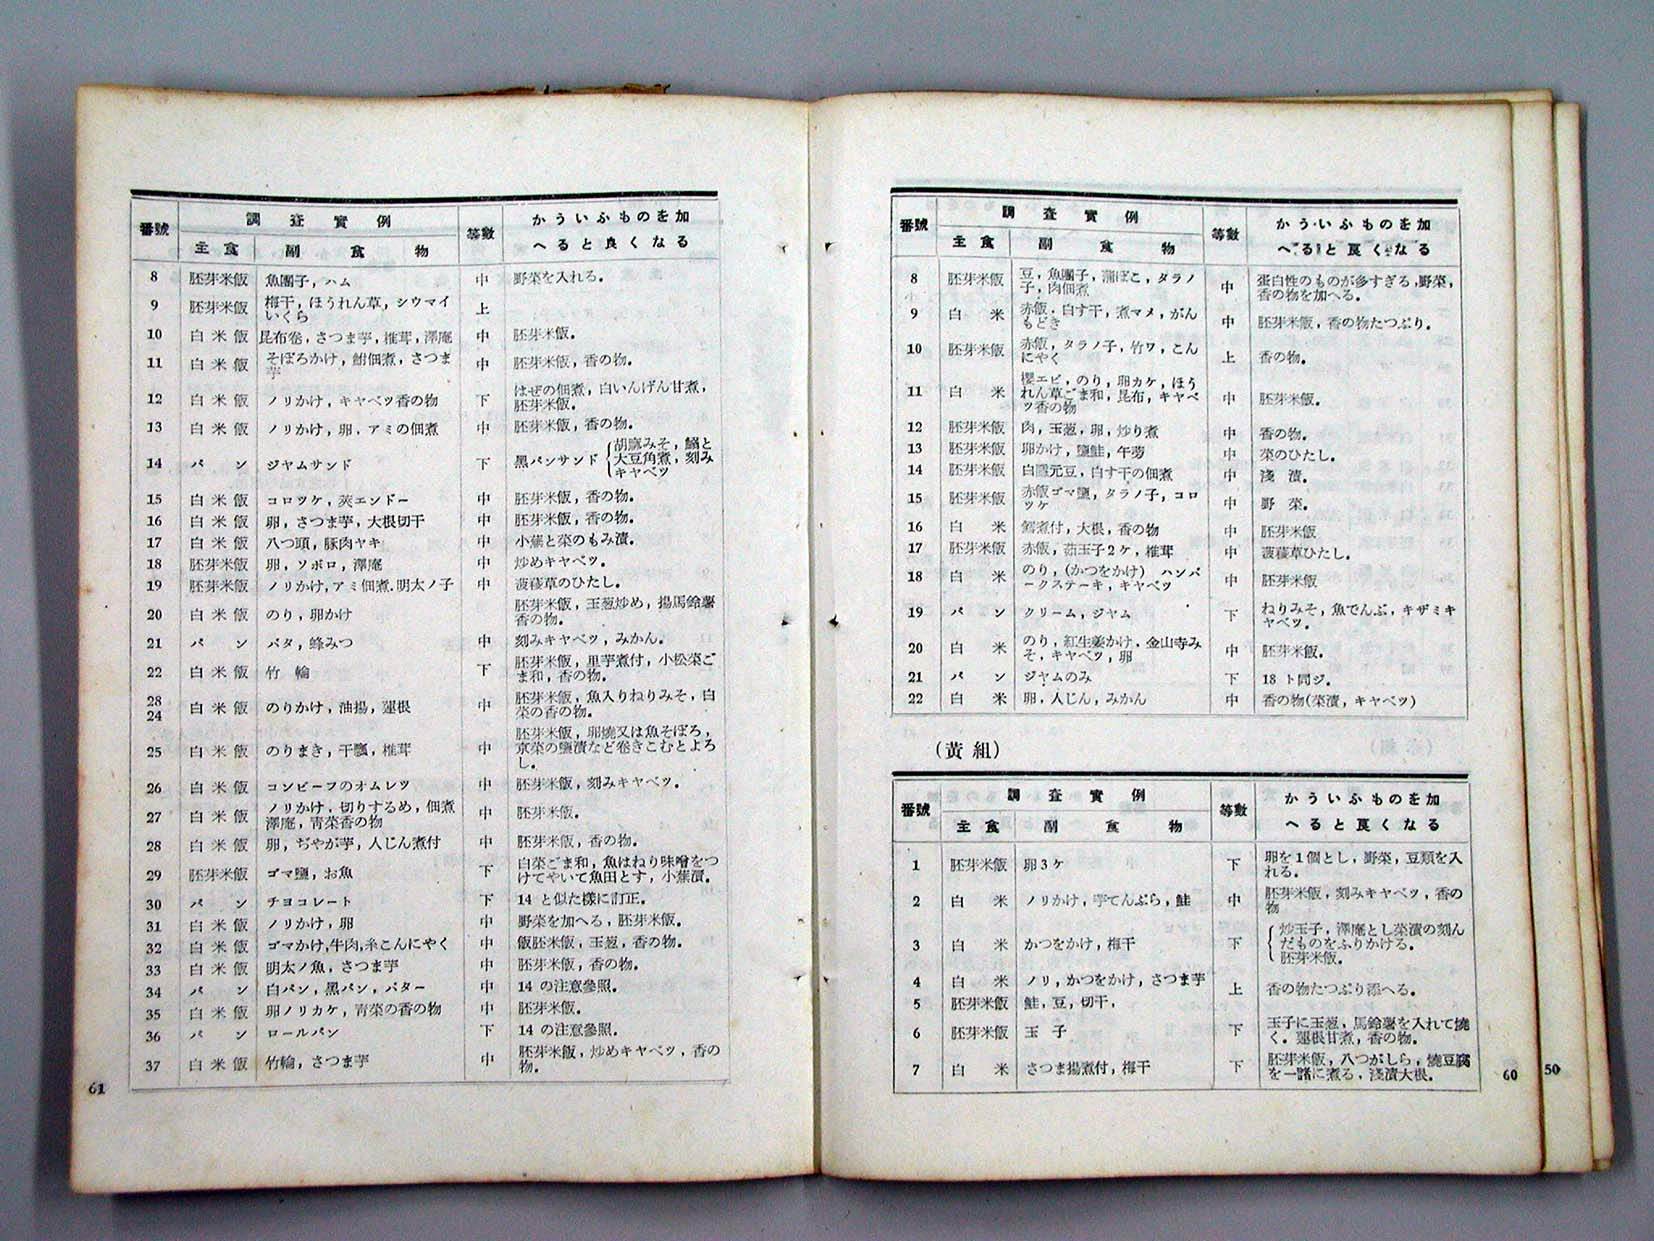 番號 調査實例 等數 かういふものを加
主食 副食物 へると良くなる
8 胚芽米飯 豆，魚團子，蒲ぼこ，タラノ 中 蛋白性のものが多すぎる，野菜，
子，肉佃煮 香の物を加へる。
9 白米 赤飯．白す干，煮マメ，がん 中 胚芽米飯，香の物たつぷり。
もどき
10 胚芽米飯 赤飯，タラノ子，竹ワ，こん 上 香の物。
にやく
11 白米 櫻エビ，のり，卵カケ，ほう 中 胚芽米飯。
れん草ごま和，昆布，キャベ
ツ香の物
12 胚芽米飯 肉，玉葱，卵，炒り煮 中 香の物。
13 胚芽米飯 卵かけ，鹽鮭，午蒡 中 菜のひたし。
14 胚芽米飯 白隱元豆，白す干の佃煮 中 淺漬。
15 胚芽米飯 赤飯ゴマ鹽，タラノ子，コロ 中 野菜。
ツケ
16 白米 鱈煮付，大根，香の物 中 胚芽米飯
17 胚芽米飯 赤飯，茹玉子2ケ，椎茸 中 菠薐草ひたし。
18 白米 のり，(かつをかけ) ハンバ 中 胚芽米飯
ークステーキ，キャベツ
19 パン クリーム，ジヤム 下 ねりみそ，魚でんぶ，キザミキ
ヤベツ。
20 白米 のり，紅生姜かけ，金山寺み 中 胚芽米飯。
そ，キャベツ，卵
21 パン ジヤムのみ 下 18ト同ジ。
22 白米 卵，人じん，みかん 中 香の物(菜漬，キャベツ)
(黃組)
番號 調査實例 等數 かういふものを加
主食 副食物 へると良くなる
1 胚芽米飯 卵3ケ 下 卵を1個とし，野菜，豆類を入
れる。
2 白米 ノリかけ，芋てんぷら，鮭 中 胚芽米飯，刻みキャベツ，香の
物
3 白米 かつをかけ，梅干 下 炒玉子，澤庵とし菜漬の刻ん
だものをふりかける。
胚芽米飯。
4 白米 ノリ，かつをかけ，さつま芋
5 胚芽米飯 鮭，豆，切干， 上 香の物たつぷり添へる。
6 胚芽米飯 玉子 下 玉子に玉葱，馬鈴薯を入れて燒
く．蓮根甘煮，香の物。
7 白米 さつま揚煮付，梅干 下 胚芽米飯，八つがしら，燒豆腐
を一諸に煮る，淺漬大根。
60
50
番號 調査實例 等數 かういふものを加
主食 副食物 へると良くなる
8 胚芽米飯 魚團子，ハム 中 野菜を入れる。
9 胚芽米飯 梅干，ほうれん草，シウマイ 上
いくら
10 白米飯 昆布卷，さつま芋，椎茸，澤庵 中 胚芽米飯。
11 白米飯 そぼろかけ，鮒佃煮，さつま 中 胚芽米飯，香の物。
芋
12 白米飯 ノリかけ，キャベツ香の物 下 はぜの佃煮，白いんげん甘煮，
胚芽米飯。
13 白米飯 ノリかけ，卵．アミの佃煮 中 胚芽米飯，香の物。
14 パン ジヤムサンド 下 黑パンサンド 胡麻みそ，鰯と
大豆角煮，刻み
キヤベツ
15 白米飯 コロツケ，莢エンドー 中 胚芽米飯，香の物。
16 白米飯 卵，さつま芋，大根切干 中 胚芽米飯，香の物。
17 白米飯 八つ頭，豚肉ヤキ 中 小蕪と菜のもみ漬。
18 胚芽米飯 卵，ソボロ，澤庵 中 炒めキヤベツ。
19 胚芽米飯 ノリかけ，アミ佃煮．明太ノ子 中 菠薐草のひたし。
20 白米飯 のり，卵かけ 胚芽米飯，玉葱炒め，揚馬鈴薯
香の物。
21 パン バタ，蜂みつ 中 刻みキヤベツ，みかん。
22 白米飯 竹輪 下 胚芽米飯，里芋煮付，小松菜ご
ま和，香の物。
28
24 白米飯 のりかけ，油揚，蓮根 中 胚芽米飯，魚入りねりみそ，白
菜の香の物。
25 白米飯 のりまき，干瓢，椎茸 中 胚芽米飯，卵燒又は魚そぼろ，
京菜の鹽漬など卷きこむとよろ
し。
26 白米飯 コンビーフのオムレツ 中 胚芽米飯，刻みキャベツ。
27 白米飯 ノリかけ，切りするめ，佃煮 中 胚芽米飯。
澤庵，靑菜香の物
28 白米飯 卵，ぢやが芋，人じん煮付 中 胚芽米飯，香の物。
29 胚芽米飯 ゴマ鹽，お魚 下 白菜ごま和，魚はねり味噌をつ
けてやいて魚田とす，小蕪漬。
30 パン チヨコレート 下 14 と似た樣に訂正。
31 白米飯 ノリかけ，卵 中 野菜を加へる，胚芽米飯。
32 白米飯 ゴマかけ,牛肉,糸こんにやく 中 飯胚米飯，玉葱，香の物。
33 白米飯 明太ノ魚，さつま芋 中 胚芽米飯，香の物。
34 パン 白パン，黑パン，バター 中 14 の注意參照。
35 白米飯 卵ノリカケ，靑菜の香の物 中 胚芽米飯。
36 パン ロールパン 下 14 の注意參照。
37 白米飯 竹輪，さつま芋 中 胚芽米飯，炒めキヤベツ，香の
物。
61